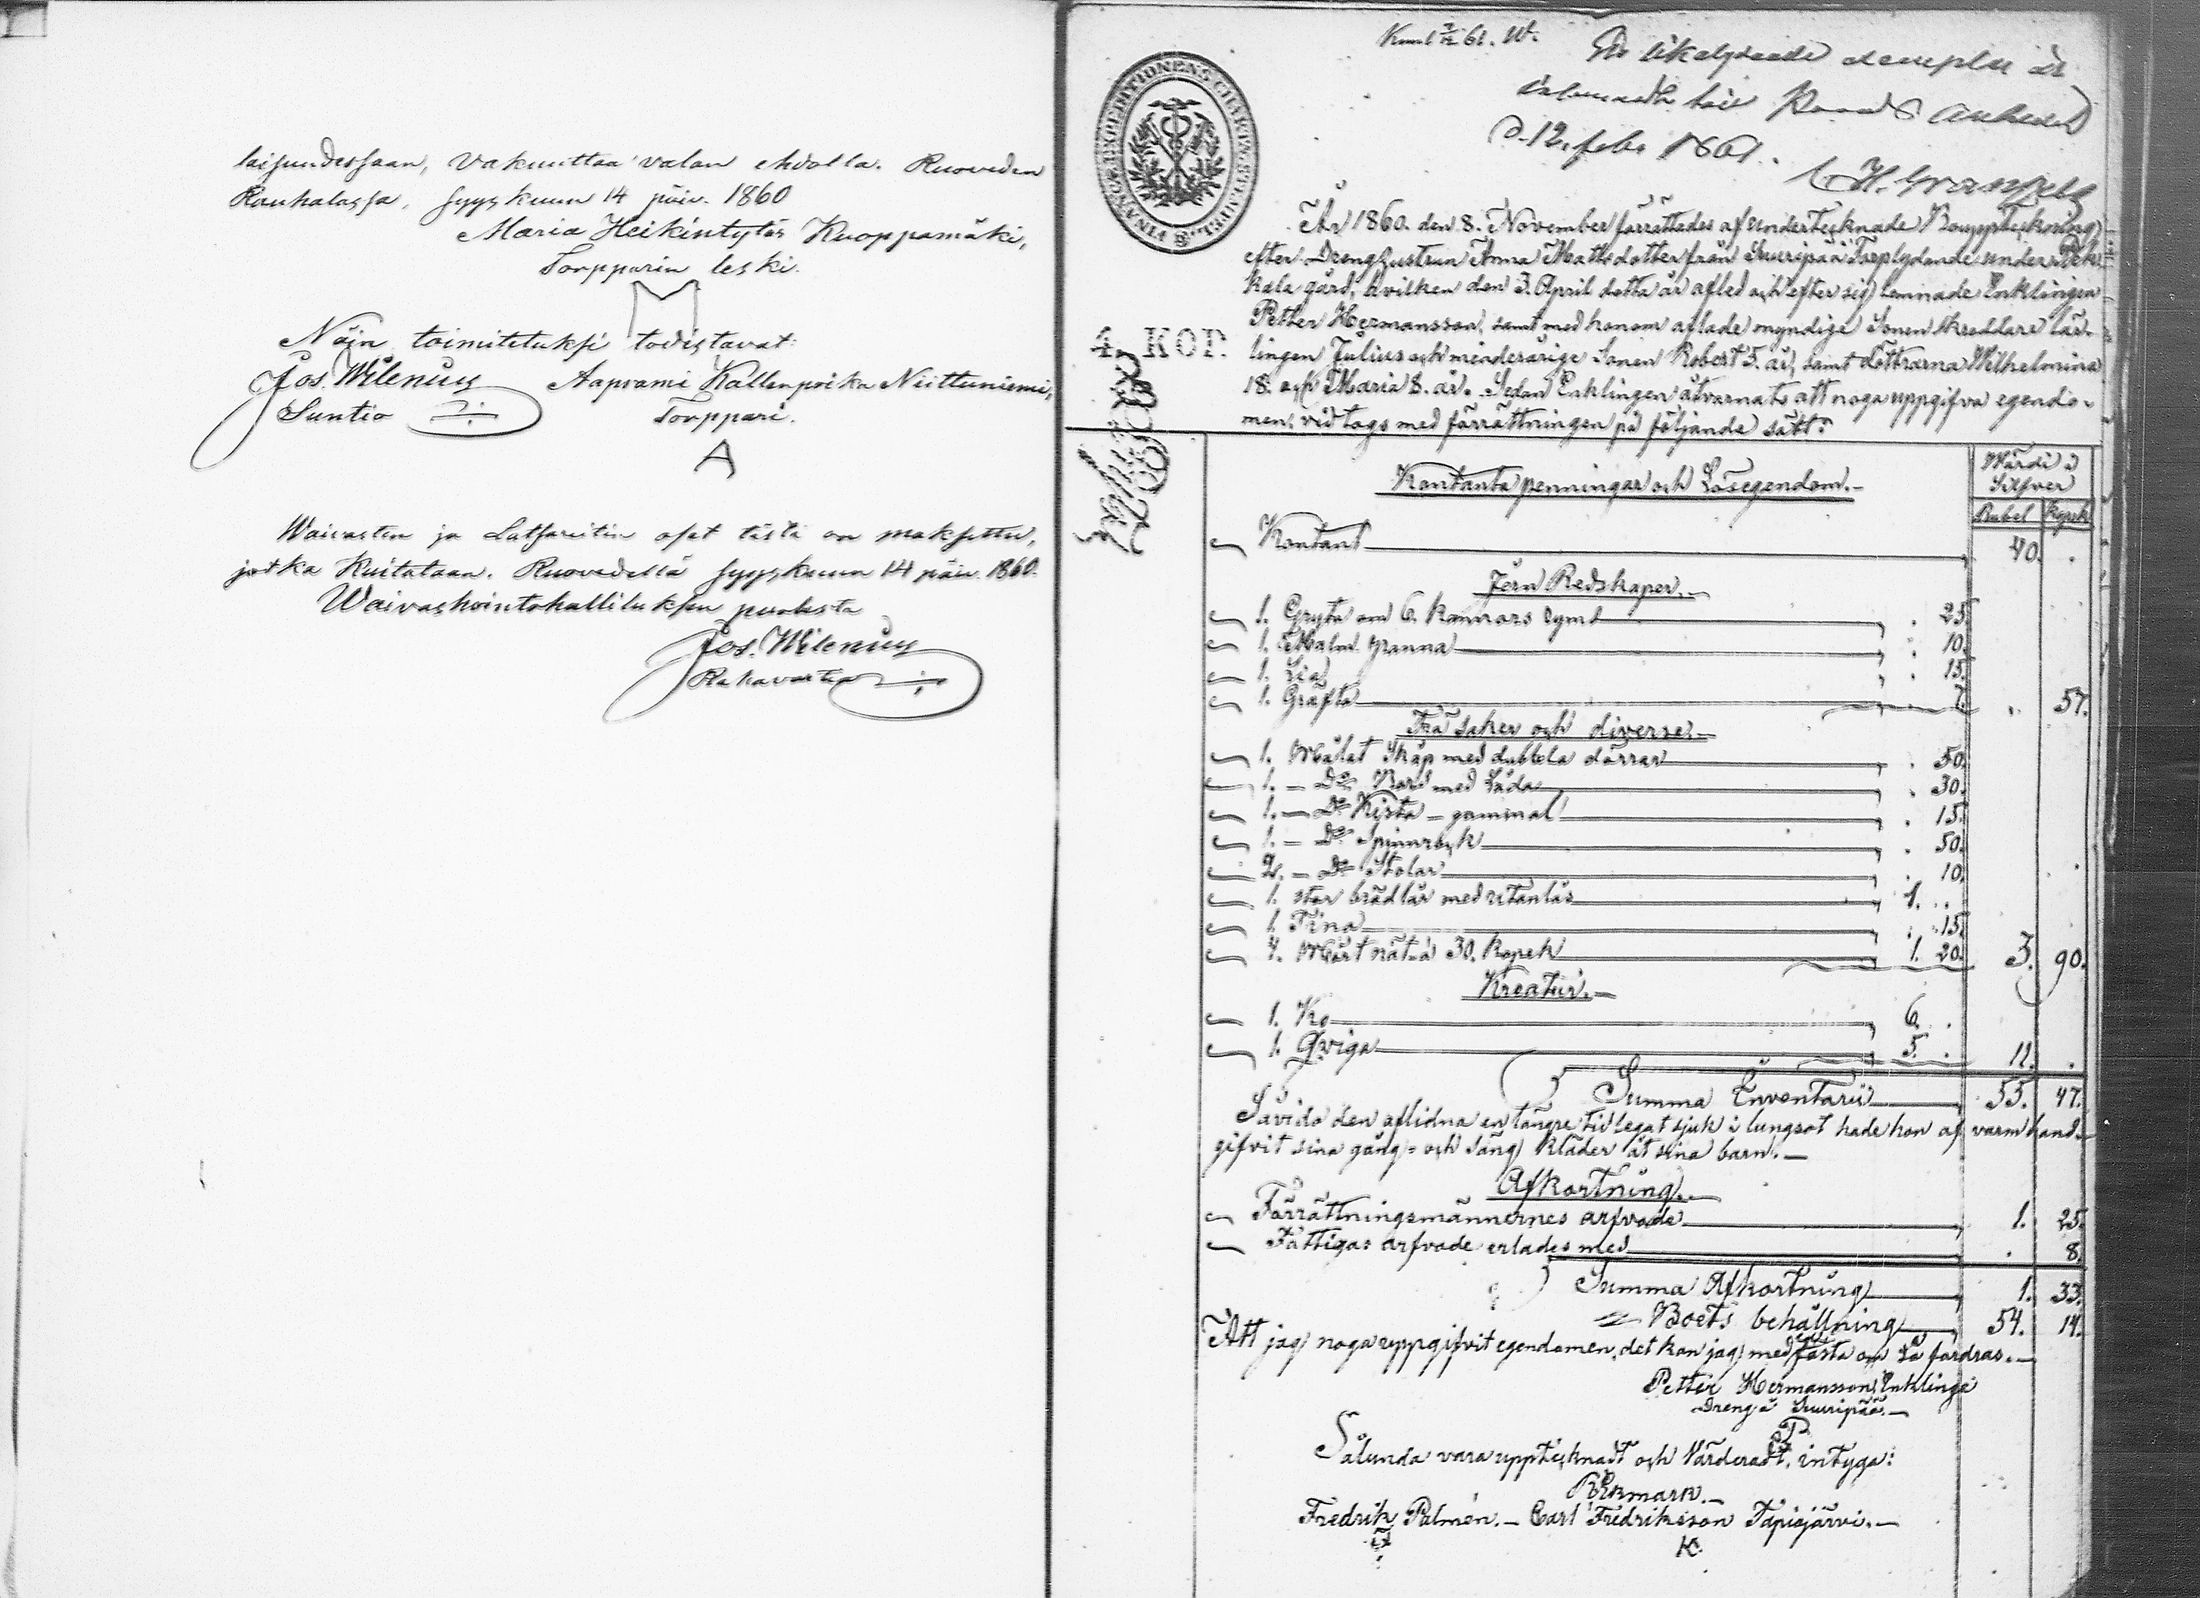 laisuudessaan, vakuuttaa valan ehdolla. Ruoveden
Rauhalassa, Syyskuun 14 päiv. 1860
Maria Heikintytär Kuoppamäki,
Torpparin leski.
Näin toimitetuksi todistavat:
Jos. Wilenius Aaprami Kallenpoika Niittuniemi,
Suntio Torppari.
A
Waivasten ja Latsareitin osat tästä on maksettu,
jotka Kuitataan. Ruovedellä Syyskuun 14 päiv. 1860.
Waivashointohallituksen puolesta
Jos. Wilenius
Rahavartia
61. W.
exemplar är
d. 12. feb. 1861.
FINANCE EXPEDITIONENS CHARTÆ STEMPEL
4. KOP.
År 1860. den 8. November förrättades af undertecknade Bouppteckning
efter Dreng hustrun Anna Mattsdotter från Suuripää Torplydande under
kala gård, hvilken den 3. April detta år afled och efter sig lemnade Enklingen
Petter Hermansson, samt med honom aflade myndige Sonen Skreddare lär-
lingen Julius och minderårige Sonen Robert 5. år, samt Döttrarna Wilhelmina
18. och Maria 8. år. Sedan Enklingen åtvarnats att noga uppgifva egendo-
men, vidtogs med förrättningen på följande sätt:
Kontanta penningar och Lösegendom.
Värdi i Silfver
Rubel Kopek
Kontant 40. .
Jern Redskaper.
1. Gryta om 6. Kannors rymd . 25.
1. Malm panna . 10.
1. Lia . 15.
1. Gräfta 7. . 57.
Trä saker och diverse.
1. Målat Skåp med dubbla dörrar . 50.
1. D:o Bord med Låda . 30.
1. D:o Kista gammal . 15.
1. D:o Spinnrock . 50.
2. D:o Stolar . 10.
1. stor brädlår med utanlås 1. .
1. Tina . 15.
4. Mört nät à 30. Kopek 1. 20. 3. 90.
Kreatur.
1. Ko 6. .
1. Qviga 5. . 11. .
Summa Inventarii 55. 47.
Såvida den aflidna en längre tid legat sjuk i lungsot hade hon af varm hand
gifvit sina gång- och säng kläder åt sina barn.
Afkortning.
Förrättningsmännernes arfvode 1. 25.
Fattigas arfvode erlades med . 8.
Summa Afkortning 1. 33.
Boets behållning 54. 14.
Att jag noga uppgifvit egendomen, det kan jag med ed fästa om så fordras.
Petter Hermansson, Enklinge
Dreng å Suuripää.
P
Sålunda vara upptecknadt och Värderadt, intyga:
R Ekmark.
Fredrik Palmén. Carl Fredriksson Tapiojärvi.
K.